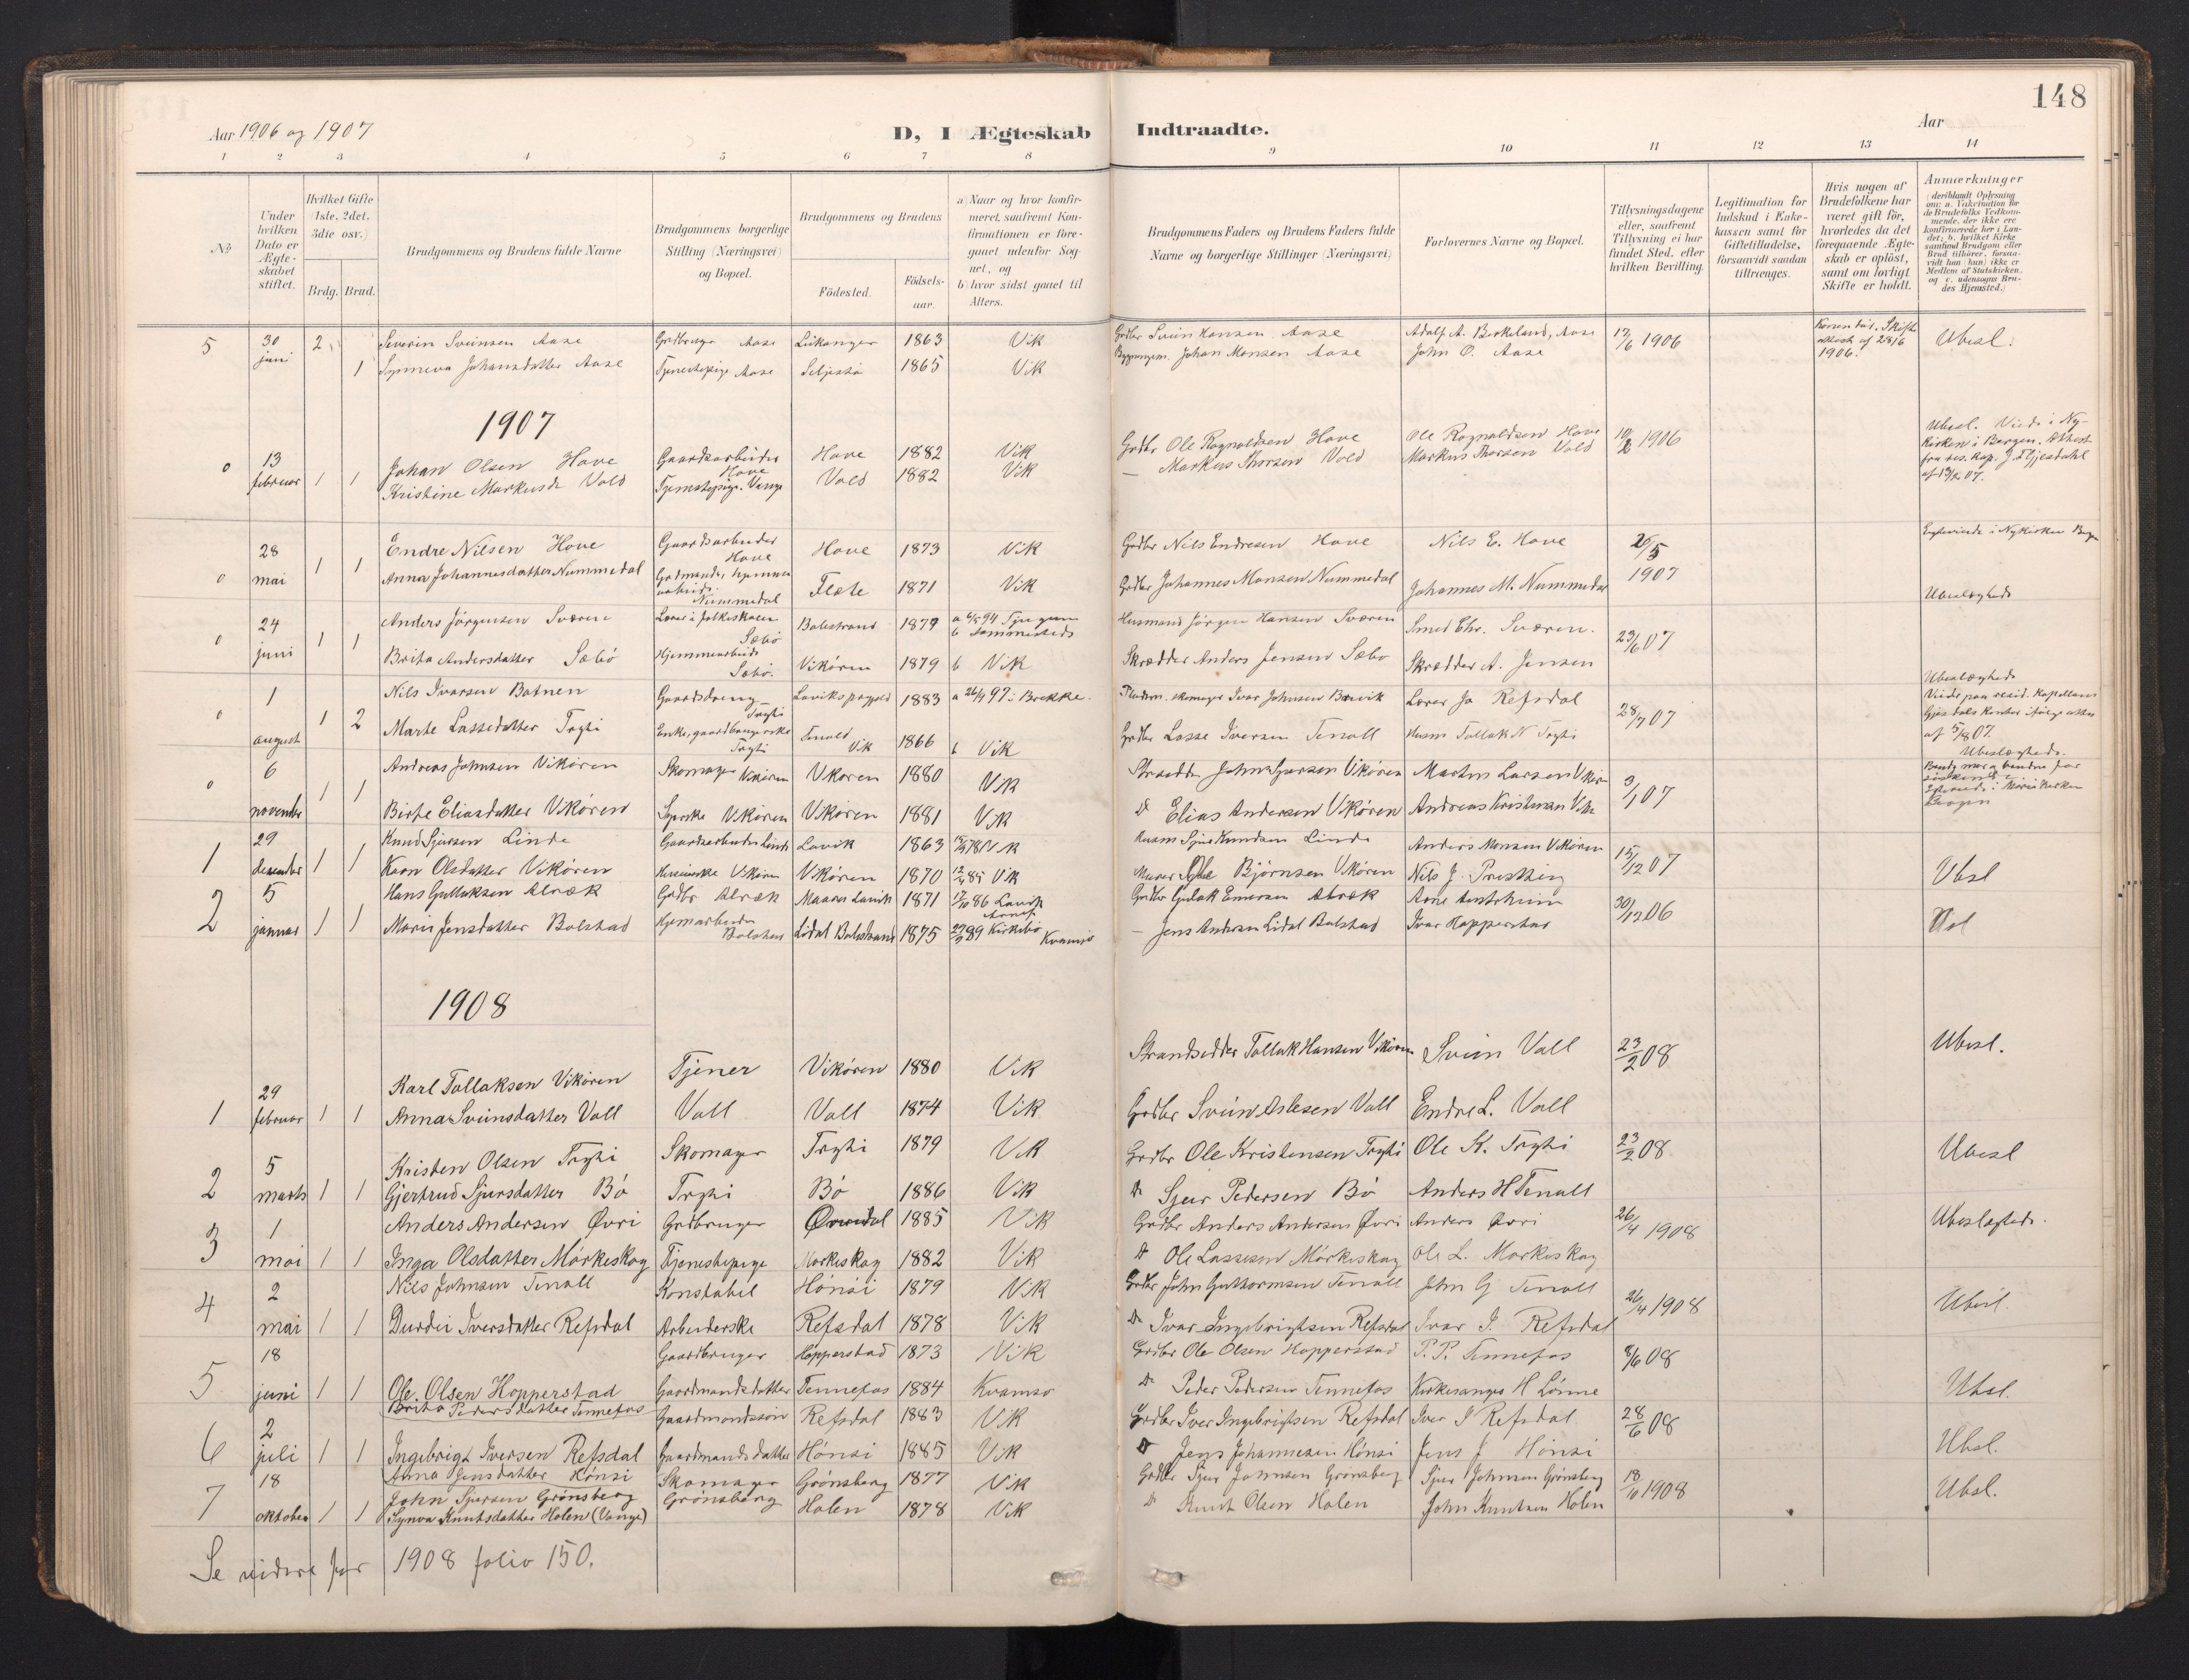 148
Aar 1906 og 1907
D, I Ægteskab Indtraadte.
Aar
1 2 3 4 5 6 7 8 9 10 11 12 13 14
No
Under hvilken Dato er Ægte-skabet stiftet.
Hvilket Gifte (1ste, 2det, 3die osv.)
Brdg. Brud.
Brudgommens og Brudens fulde Navne
Brudgommens borgerlige Stilling (Næringsvei) og Bopæl.
Brudgommens og Brudens
Födested.
Födsels-aar.
a) Naar og hvor konfir-meret, saafremt Kon-firmationen er fore-gaaet udenfor Sog-net, og
b) hvor sidst gaaet til Alters.
Brudgommens Faders og Brudens Faders fulde Navne og borgerlige Stillinger (Næringsvei)
Forlovernes Navne og Bopæl.
Tillysningsdagene eller, saafremt Tillysning ei har fundet Sted, efter hvilken Bevilling.
Legitimation for Indskud i Enke-kassen samt for Giftetilladelse, forsaavidt saadan tiltrænges.
Hvis nogen af Brudefolkene har været gift för, hvorledes da det foregaaende Ægte-skab er oplöst, samt om lovligt Skifte er holdt.
Anmærkninger
(deriblandt Oplysning om: a. Vakcination for de Brudefolks Vedkom-mende, der ikke ere konfirmerede her i Lan-det; b. hvilket Kirke-samfund Brudgom eller Brud tilhörer, forsaa-vidt han (hun) ikke er Medlem af Statskirken, og c. udensogns Bru-des Hjemsted.)
5 30 juni 2 Severin Sveinsen Aase Grdbruger Aase Leikanger 1863 Vik Grdbr Svein Hansen Aase Adolf A. Berkeland, Aase 17/6 1906 Ubesl.
1 Synneva Johansdatter Aase Tjenestepige Aase Seljestö 1865 Vik Johan Monsen Aase John O. Aase
1906.
1907
0 13 februar 1 1 Johan Olsen Hove Gaardsarbeider Hove Hove 1882 Vik Grdbr Ole Rognaldsen Hove Ole Rognaldsen Hove 1906 Ubesl. Viede i Ny-kirken i Bergen. Attest fra res. kap. J. Gjesdahl
Kristine Markusdr Vold Tjenestepige. Vange Vold 1882 Vik — Markus Thorsen Vold Markus Thorsen Vold
0 28 mai 1 1 Endre Nilsen Hove Gaardsarbeider Hove Hove 1873 Vik Grdbr Nils Endresen Hove Nils E. Hove 26/5 1907 Egteviede i Nykirken Bergen
Anna Johannesdatter Nummedal Nummedal Flete 1871 Vik Grdbr Johannes Monsen Nummedal Johannes M. Nummedal Ubeslægtede
0 24 juni 1 1 Anders Jörgensen Sværen Lærer i folkeskolen Sæbö Balestrand 1879 b sammesteds Husmand Jörgen Hansen Sværen Smed Chr. Sværen. 23/6 07
Brita Andersdatter Sæbö Hjemmearbeide Sæbö. Vikören 1879 b Vik Skrædder Anders Jensen Sæbö Skrædder A. Jensen Ubeslægtede
0 1 august 1 2 Nils Ivarsen Botnen Gaardsdreng Trytti 1883 a 97 i Brekke. Ivar Johnsen Lærer Jo Refsdal 28/7 07 Viede paa resid. kapellan Gjesdals kontor
Marte Lassedatter Trytti Enke, gaardbrugerske Trytti Tenold Vik 1866 b Vik Grdbr Lasse Iversen Tenoll Husm Tollak N Trytti Ubeslægtede.
0 6 november 1 1 Andreas Johnsen Vikören Skomager Vikören Vikören 1880 Vik Vikören Martin Larsen Vikören 3/ 07
Birte Eliasdatter Vikören Syerske Vikören Vikören 1881 Vik D Elias Andersen Vikören Andreas Kristensen Bergen
1 29 desember 1 1 Knud Sjursen Linde Gaardsarbeider Linde Lavik 1863 78 Vik Husm Sjur Knudsen Linde Anders Monsen Vikören 15/12 07 Ubsl
Karn Olsdatter Vikören Vikören Vikören 1870 85 Vik Murer Ole Björnsen Vikören Nils J.
2 5 januar 1 1 Hans Gullaksen Alræk Grdbr Alræk Maaren Lavik 1871 86 Lavik Grdbr Alræk Arne 30/12 06
Marie Jensdatter Bolstad Hjemarbeide Bolstad Lidal Balestrand 1875 89 Kirkebö Kvamsö — Jens Andersen Lidal Bolstad Ivar Hopperstad
1908
1 29 februar 1 1 Karl Tollaksen Vikören Tjener Vikören 1880 Vik Strandsidder Tollak Hansen Vikören Svein Voll 23/2 08 Ubesl.
Anna Sveinsdatter Voll Voll Voll 1874 Vik Grdbr Svein Aslesen Voll Endre L. Voll
2 5 marts 1 1 Kristen Olsen Trytti Skomager Trytti 1879 Vik Grdbr Ole Kristensen Trytti Ole K. Trytti 23/2 08 Ubesl
Gjertrud Sjursdatter Bö Trytti Bö 1886 Vik D Sjur Pedersen Bö Anders H Tenoll
3 1 mai 1 1 Anders Andersen Övri Grdbruger 1885 Vik Grdbr Anders Andersen Övri Anders Övri 26/4 1908 Ubeslægtede.
Inga Olsdatter Mörkeskog Tjenestepige Mörkeskog 1882 Vik D Ole Lassesen Mörkeskog Ole L. Mörkeskog
4 2 mai 1 1 Nils Johnsen Tenoll Konstabel Hönsi 1879 Vik Grdbr John Guttormsen Tenoll John G Tenoll 26/4 1908 Ubesl.
Durdei Iversdatter Refsdal Arbeiderske Refsdal 1878 Vik D Ivar Ingebrigtsen Refsdal Ivar I. Refsdal
5 18 juni 1 1 Ole Olsen Hopperstad Gaardbruger Hopperstad 1873 Vik Grdbr Ole Olsen Hopperstad P. P. Tennefos 8/6 08 Ubsl.
Brita Pedersdatter Tennefos Gaardmandsdatter Tennefos 1884 Kvamsö D Peder Pedersen Tennefos Kirkesanger H Lönne
6 2 juli 1 1 Ingebrigt Iversen Refsdal Gaardmandssön Refsdal 1883 Vik Grdbr Iver Ingebrigtsen Refsdal Iver I Refsdal 28/6 08 Ubsl.
Anna Jensdatter Hönsi Gaardmandsdatter Hönsi 1885 Vik D Jens Johannesen Hönsi Jens J Hönsi
7 18 oktober 1 1 John Sjursen Grönsberg Skomager Grönsberg Grönsberg 1877 Vik Grdbr Sjur Johnsen Grönsberg Sjur Johnsen Grönsberg 18/10 1908 Ubsl.
Synva Knutsdatter Holen (Vange) Holen 1878 Vik D Knut Olsen Holen John Knutsen Holen
Se videre for 1908 folio 150.